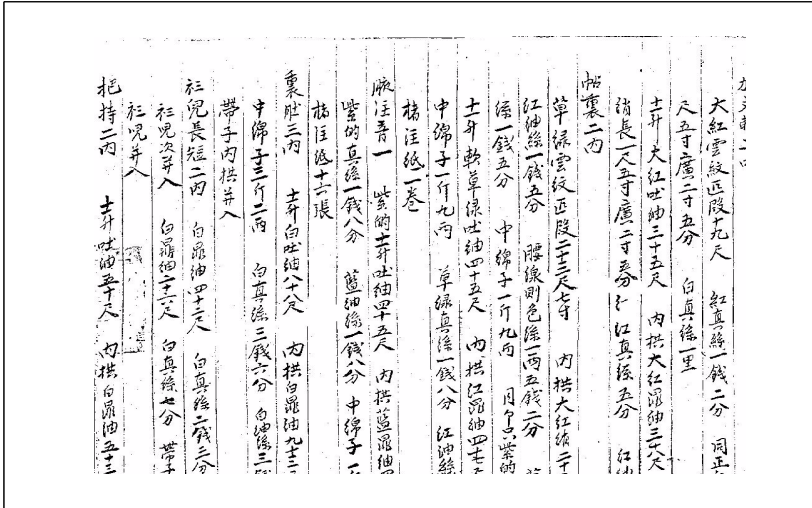 大紅雲紋匹段十九尺 紅真絲一錢二分 同正
尺五寸廣二寸五分 白真絲一里
十二升大紅吐紬三十五尺 內拱大紅鼎紬三十八尺
綃長一尺五寸廣二寸五分 紅真絲五分 紅紬
帖裏二內
草綠雲紋匹段二十三尺七寸 內拱大紅綃二十
紅紬絲一錢五分 腰線則色絲一兩五錢二分
絲一錢五分 中綿子一斤九兩 同 紫的
十二升軟草綠吐紬四十五尺 內拱紅鼎紬四十七尺
中綿子一斤九兩 草綠真絲一錢八分 紅紬絲
楮注紙一卷
腋注音一 紫的十二升吐紬四十五尺 內拱藍鼎紬四
紫的真絲一錢八分 藍紬絲一錢八分 中綿子一
楮注紙十六張
裏肚三內 十二升白吐紬八十八尺 內拱白鼎紬九十二
中綿子三斤二兩 白真絲三錢六分 白紬絲三錢
帶子內拱并入
衫兒長短二內 白鼎紬四十三尺 白真絲二錢三分
衫兒次并入 白鼎紬二十六尺 白真絲七分 帶子
衫兒并入
把持二內 十二升吐紬五十尺 內拱白鼎紬五十三